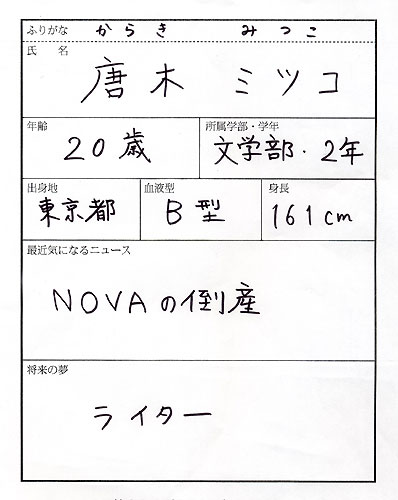 ふりがな からき みつこ
氏 名
唐木 ミツコ
年齢 所属学部・学年
20歳 文学部・2年
出身地 血液型 身長
東京都 B型 161cm
最近気になるニュース
NOVAの倒産
将来の夢
ライター